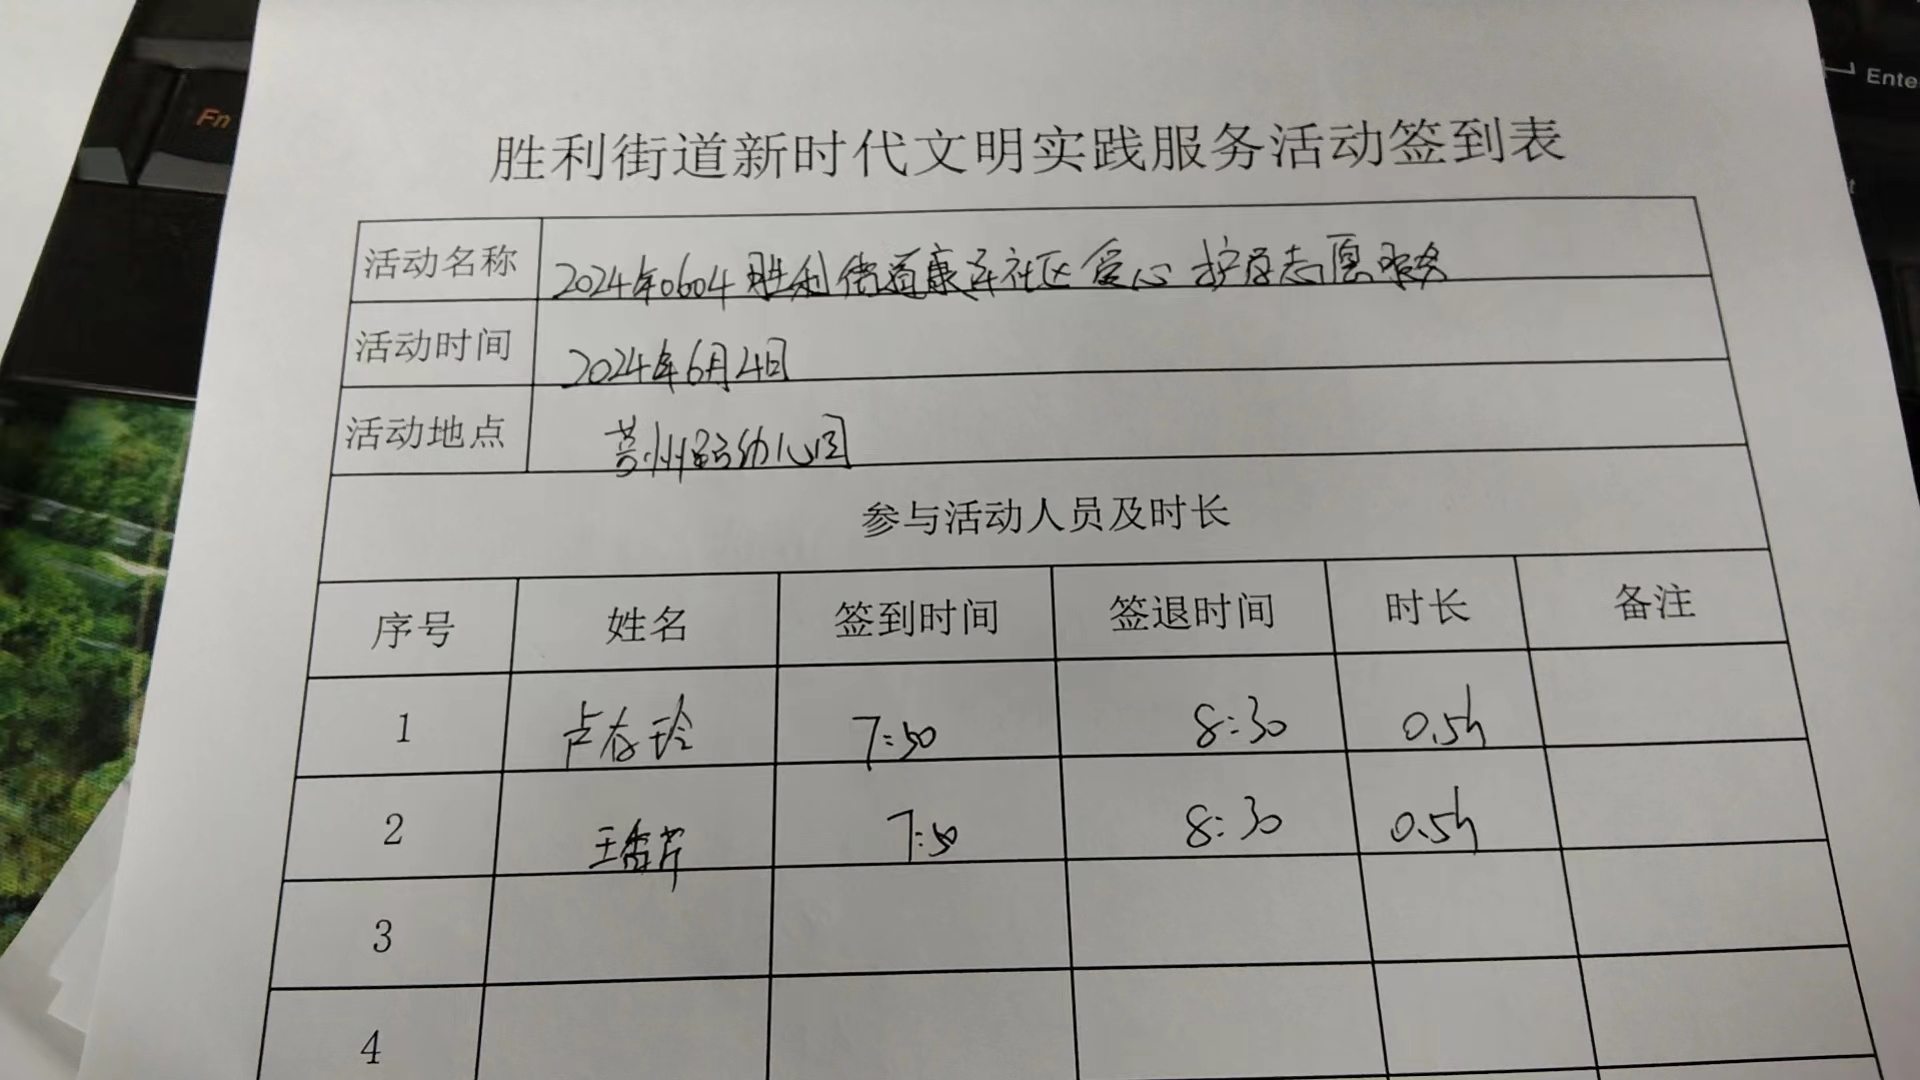 Fn
Enter
胜利街道新时代文明实践服务活动签到表
活动名称 2024年0604胜利街道康乐社区爱心护学志愿服务
活动时间 2024年6月4日
活动地点 莒州路幼儿园
参与活动人员及时长
序号 姓名 签到时间 签退时间 时长 备注
1 卢存玲 7:50 8:30 0.5h
2 王 7:50 8:30 0.5h
3
4